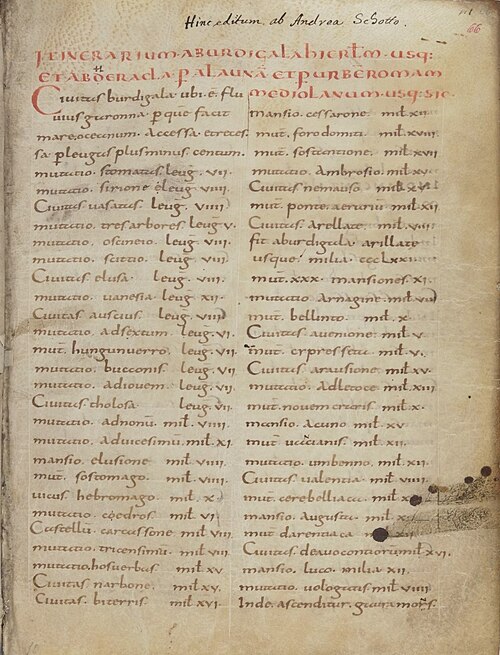 Hinc editum ab Andrea Schotto.
66
ITINERARIUM A BURDIGALA HIERLM USQ:
ET AB ERACLA P AULAUNA ET P URBE ROMAM
MEDIOLANUM USQ: SIC
Civitas burdigala ubi e flu
vius garonna p que facit
mare oceanum Accessa et reces
sa p leugas plus minus centum.
mutatio stomatas leug. VII.
mutatio sirione leug. VIIII.
Civitas vasatas leug. VIIII.
mutatio tres arbores leug V.
mutatio oscineio leug. VIII.
mutatio scittio leug. VIII.
Civitas elusa leug. VIII.
mutatio vanesia leug. XII.
Civitas auscius leug. VIII
mutatio ad sextum leug. VI.
mut. hungunverro leug. VII.
mutatio bucconis leug. VII
mutatio ad iovem leug. VII.
Civitas tholosa leug. VII
mutatio ad nonu mil. VIIII.
mutatio ad vicesimu mil. XI.
mansio elusione mil. VIIII.
mut. sostomago mil. VIIII.
vicus hebromago mil. X.
mutatio cedros mil. VI
Castellu carcassone mil. VIII
mutatio tricensimu mil. VIII.
mutatio hosverbas mil. XV
Civitas narbone mil. XV.
Civitas biterris mil. XVI.
mansio cessarone mil. XII
mut. foro domiti mil. XVIII.
mut. sostantione mil. XVII
mutatio Ambrosio mil. XV
Civitas nemauso mil. XV
mut. ponte aerariu mil. XII
Civitas arellate mil. VIII
fit a burdigala arillate
usque milia CCCLXXI
mut. XXX mansiones XI.
mutatio Arnagine mil. VIII
mut. bellinto mil. X.
Civitas avenione mil. V.
mut. cypresseta mil. V.
Civitas arausione mil. XV
mutatio ad letoce mil. XIII
mut. novem craris mil. X.
mansio Acuno mil. XV
mut vancianis mil. XII.
mutatio umbenno mil. XII.
Civitas valentia mil. VIIII
mut. cerebelliaca mil. XII
mansio Augusta mil. X
mut darentiaca XII
Civitas dea vocontioru mil XVI.
mansio luco milia XII
mutatio vologatis mil VIIII
Inde ascenditur gaura mons.